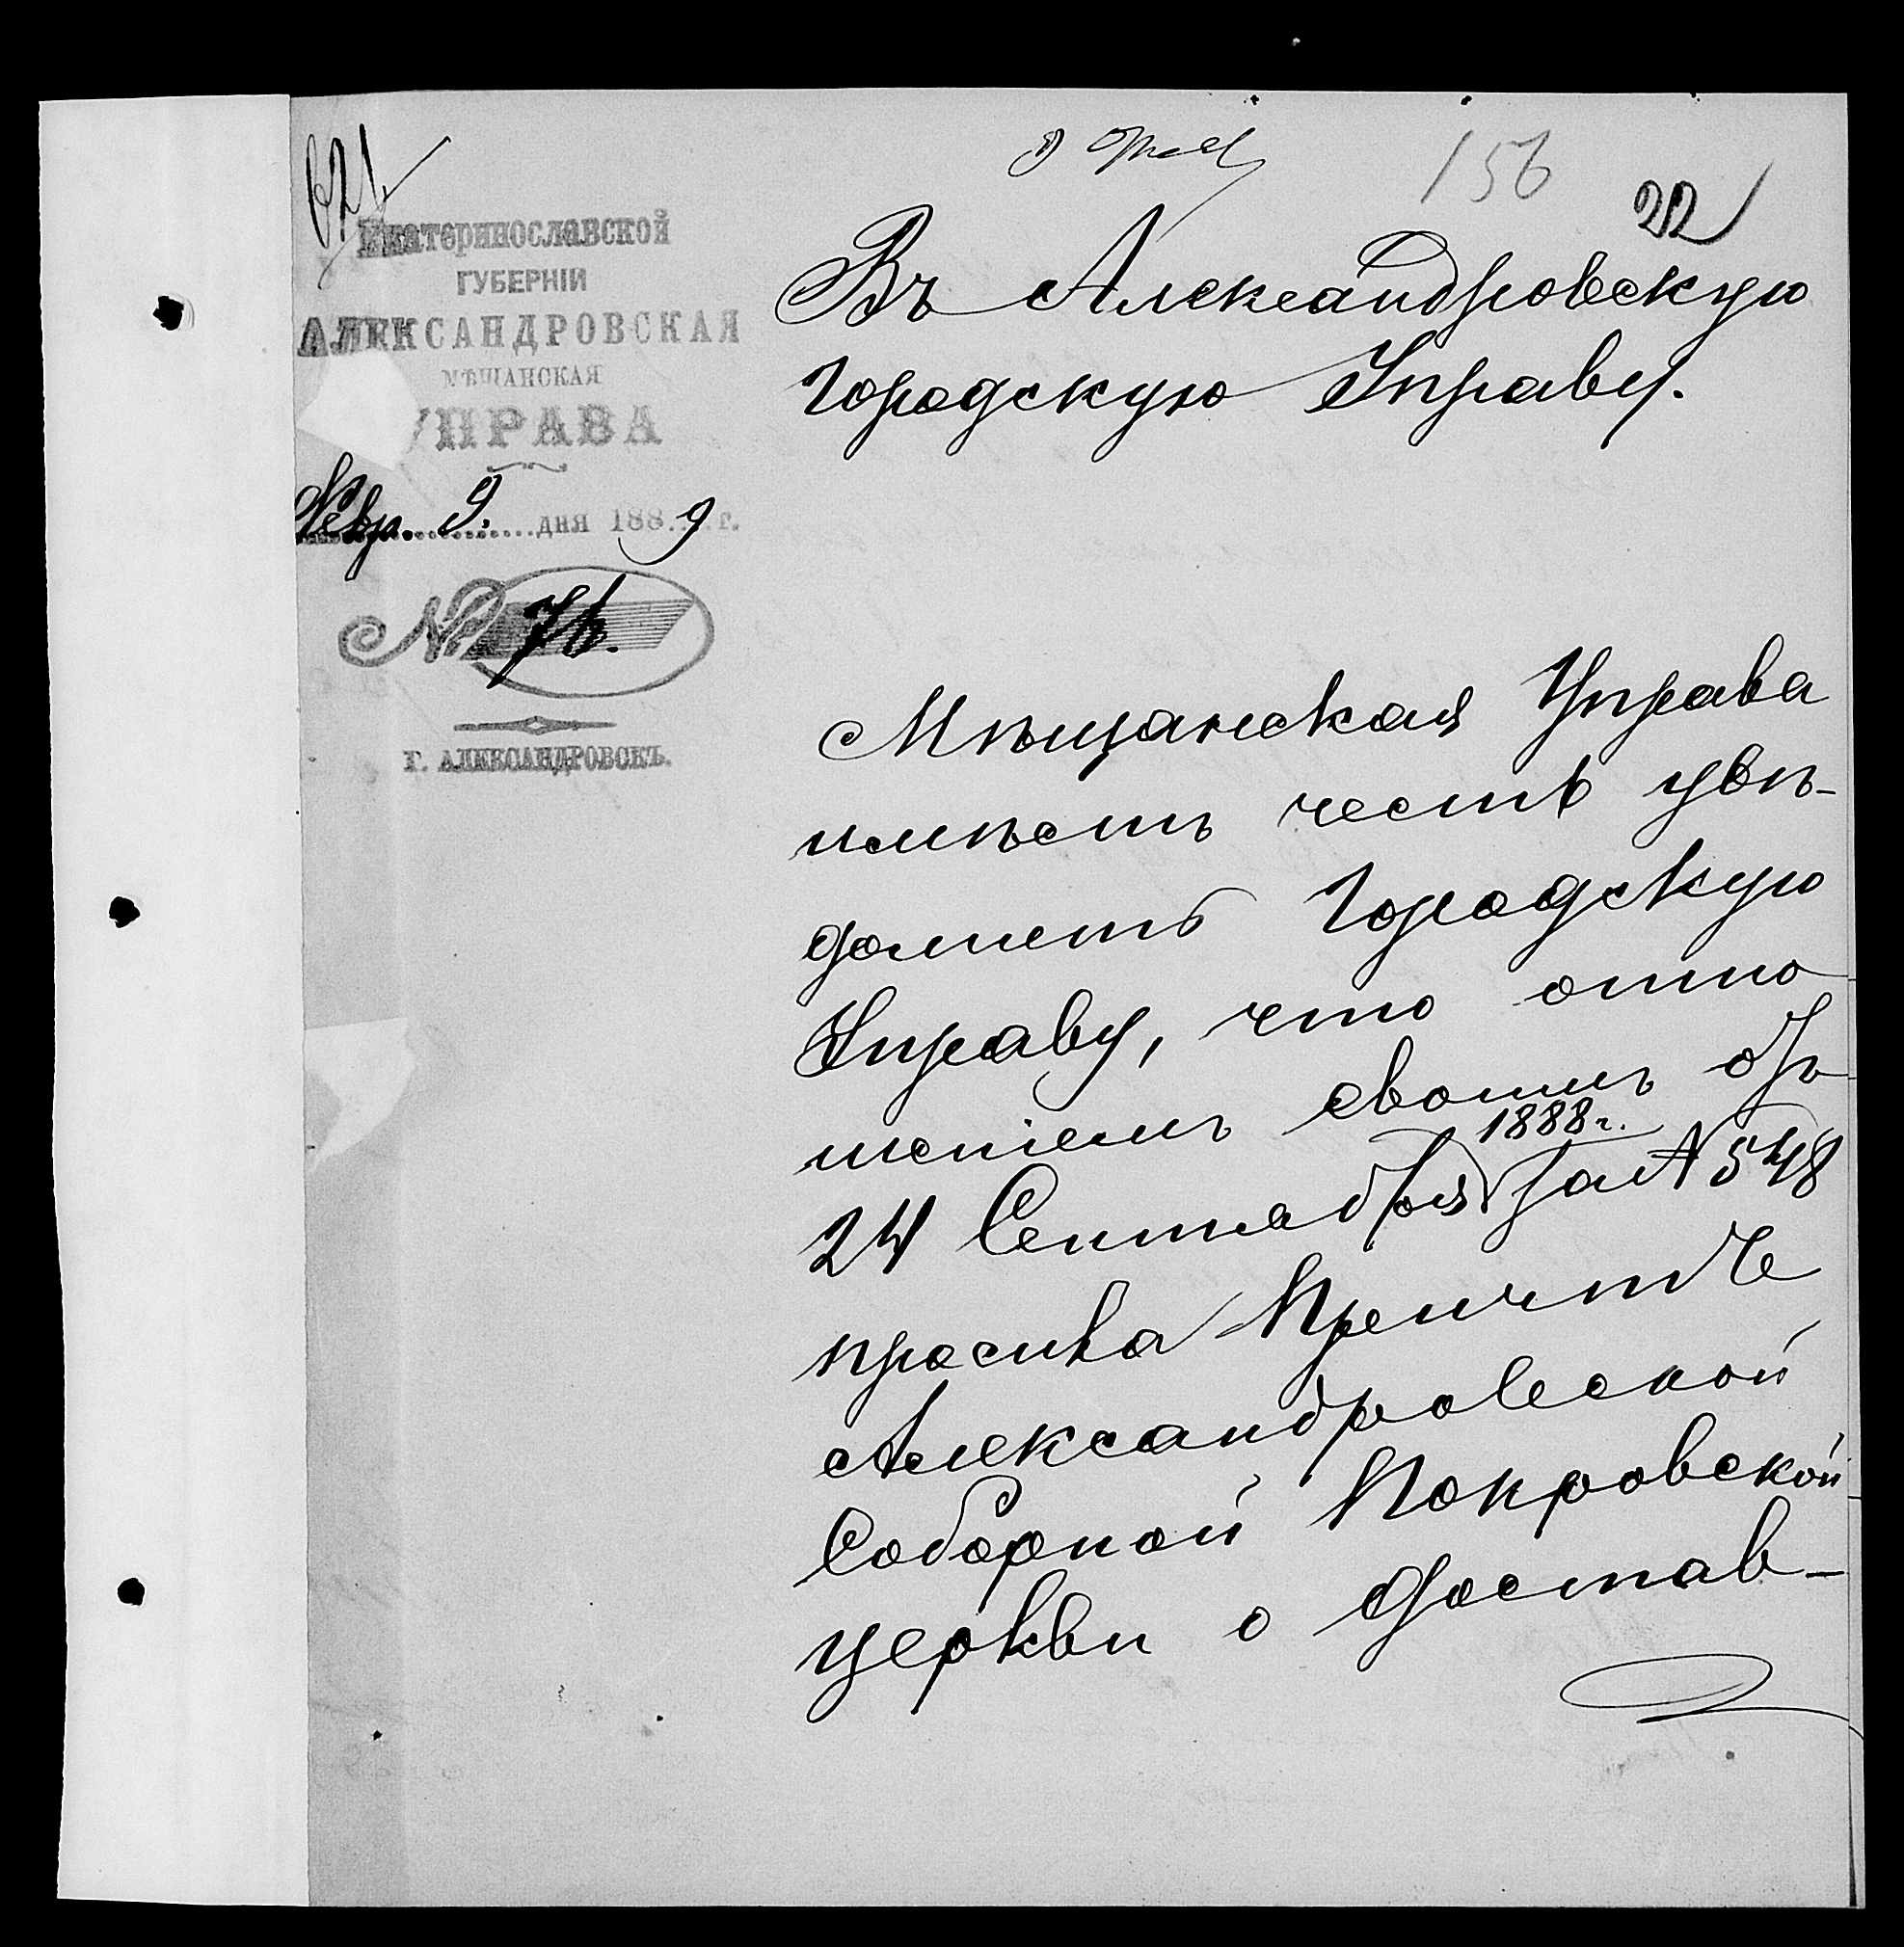 621
156
22
Екатеринославской
ГУБЕРНІИ
АЛЕКСАНДРОВСКАЯ
МѢЩАНСКАЯ
УПРАВА
Февр. 9. дня 1889 г.
№ 76.
Г. АЛЕКСАНДРОВСКЪ.
Въ Александровскую
Городскую Управу.
Мѣщанская Управа
имѣетъ честь увѣ-
домить Городскую
Управу, что отно-
шеніемъ своимъ отъ
1888 г.
24 Сентября за № 548
просила Причтъ
Александровской
Соборной Покровской
церкви о достав-